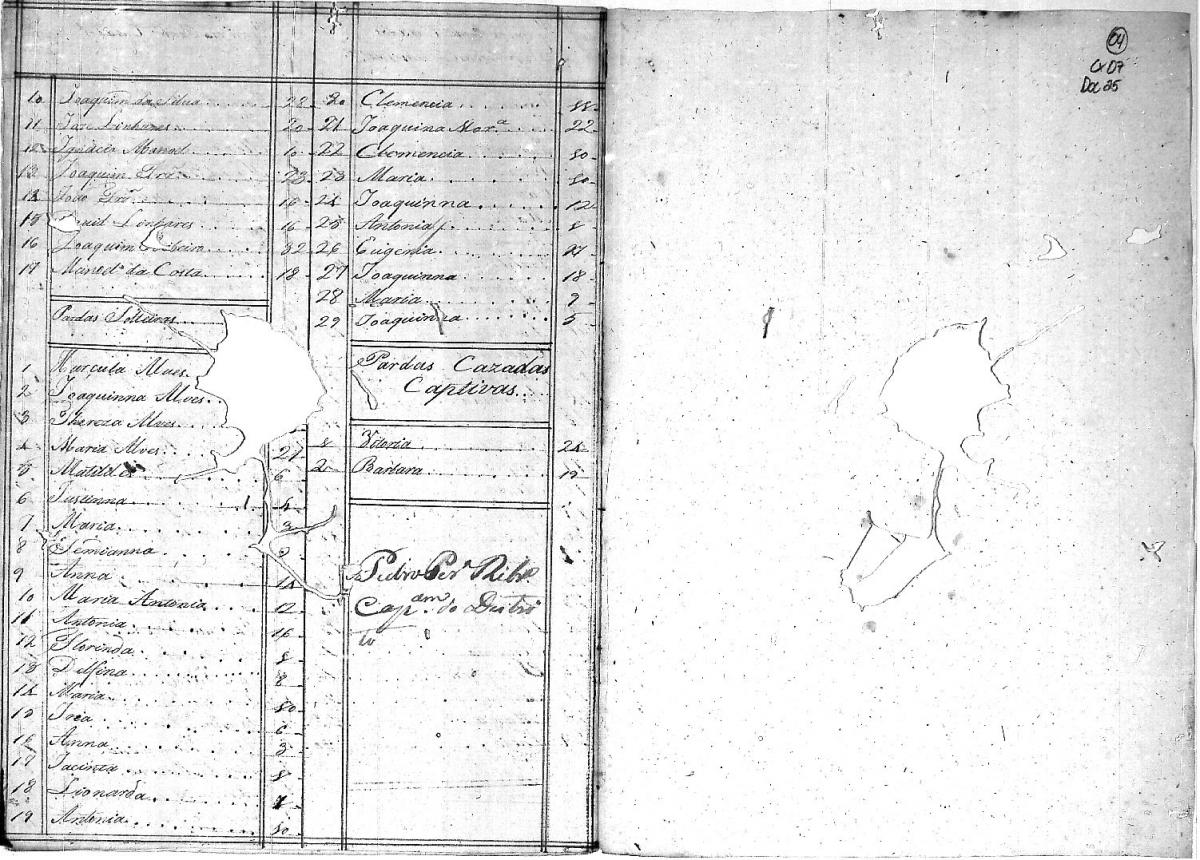 10 Joaquim da Silva 22
11 Joze Linhares 20
12 Ignacio Manoel 10
13 Joaquim 23
14 João 18
15 Linhares 16
16 Joaquim Ribeiro 32
17 Manoel da Costa 18
Pardas Solteiras
1 Alves
2 Joaquinna Alves
3 Thereza Alves
4 Maria Alves 27
5 Matildes 6
6 4
7 Maria 3
8 Semianna
9 Anna 14
10 Maria Antonia 12
11 Antonia 16
12 Florinda
13 Delfina 8
14 Maria 50
15 Irea 6
16 Anna 3
17 Jacinta
18 Lionarda
19 Antonia 50
20 Clemencia
21 Joaquina Mor.ª 22
22 Clemencia 50
23 Maria 50
24 Joaquinna 12
25 Antonia
26 Eugenia
27 Joaquinna 18
28 Maria
29 Joaquinna 5
Pardas Cazadas
Captivas
1 Vitoria 24
2 Barbara
Pedro Per.ª Ribr.º
Cap.am do Destri
to
04
Cx 07
Doc 25